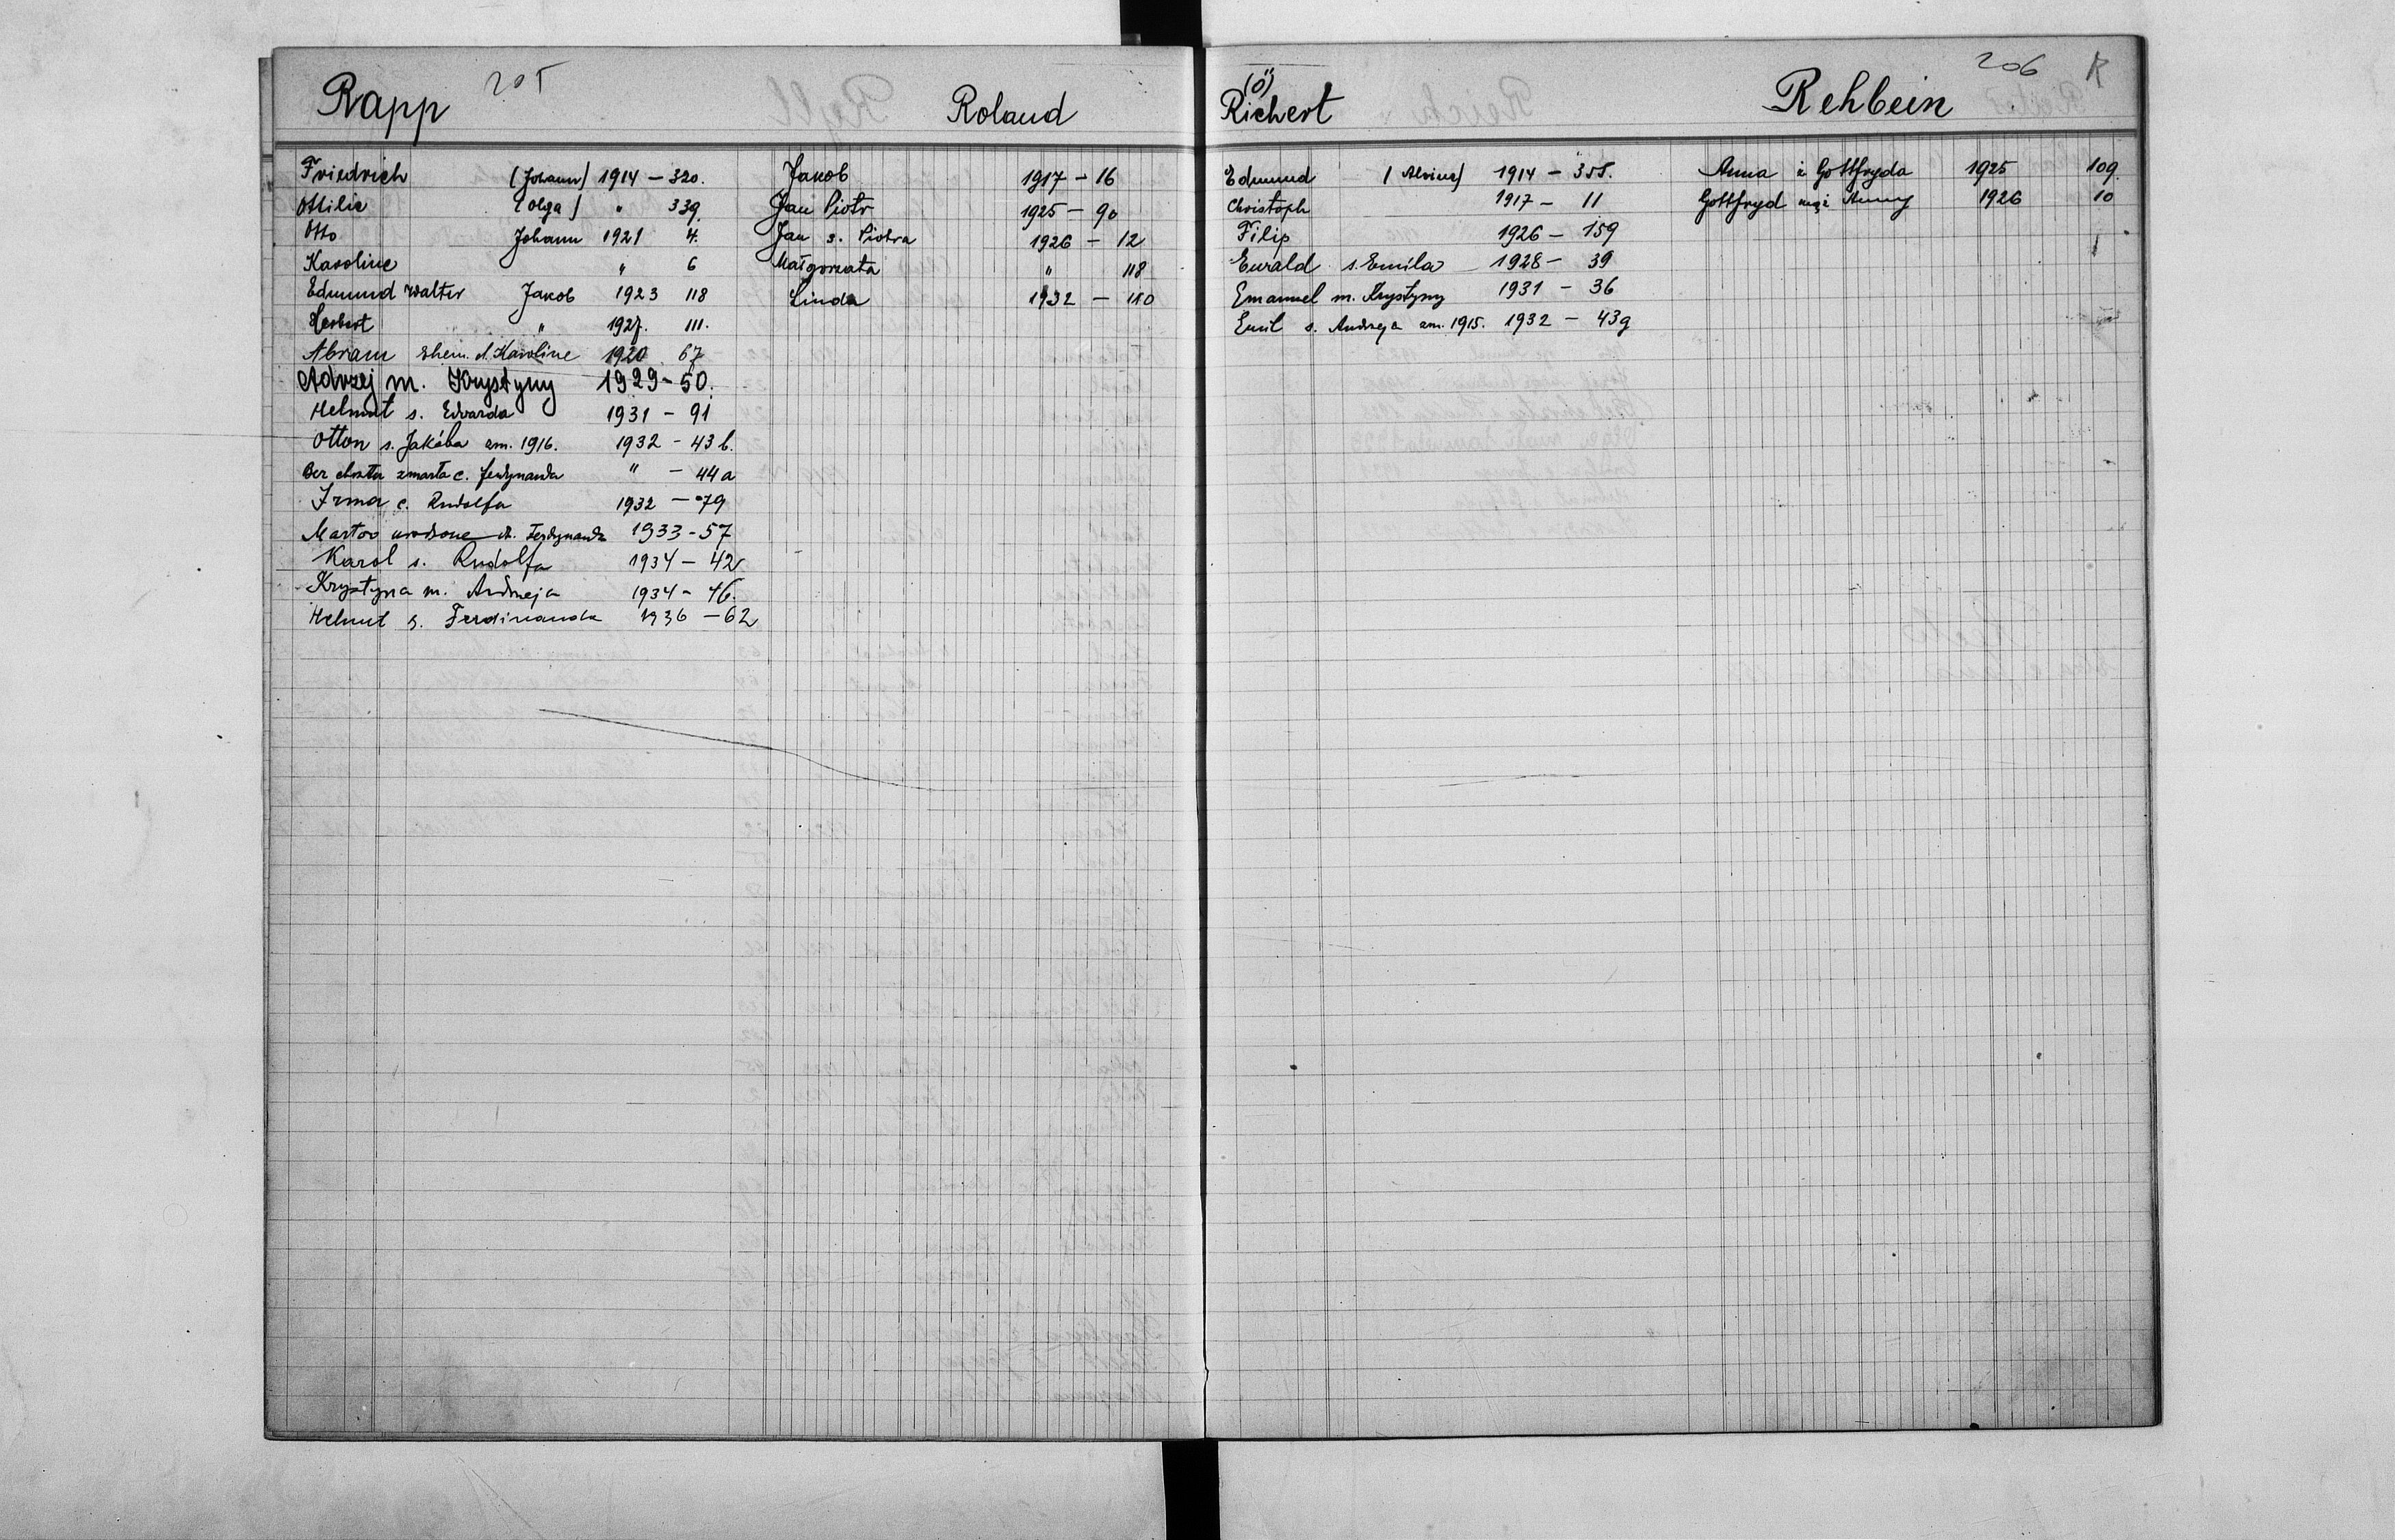 205
Rapp
Friedrich (Johann) 1914 — 320.
Ottilie (Olga) " 339.
Otto Johann 1921 4.
Karoline " 6
Edmund Walter Jakob 1923 118
Herbert " 1927. 111.
Abram Ehem. d. Karoline 1920 67
Adrzej m. Krystyny 1929 - 50.
Helmut s. Edwarda 1931 - 91
Otton s. Jakóba zm. 1916. 1932 - 43 b.
Bez chrztu zmarła c. Ferdynanda " - 44 a
Irma c. Rudolfa 1932 — 79
Martwo urodzone dz. Ferdynanda 1933 - 57
Karol s. Rudolfa 1934 — 42
Krystyna m. Andrzeja 1934 - 46.
Helmut s. Ferdinanda 1936 — 62
Roland
Jakob 1917 - 16
Jan Piotr 1925 - 90
Jan s. Piotra 1926 - 12
Małgorzata " 118
Linda 1932 — 110
(ö)
Richert
Edmund (Alvine) 1914 — 355.
Christoph 1917 — 11
Filip 1926 — 159
Ewald s. Emila 1928 — 39
Emanuel m. Krystyny 1931 - 36
Emil s. Andrzeja zm. 1915. 1932 — 43g
206 R
Rehbein
Anna ż Gottfryda 1925 109.
Gottfryd mąż Anny 1926 10